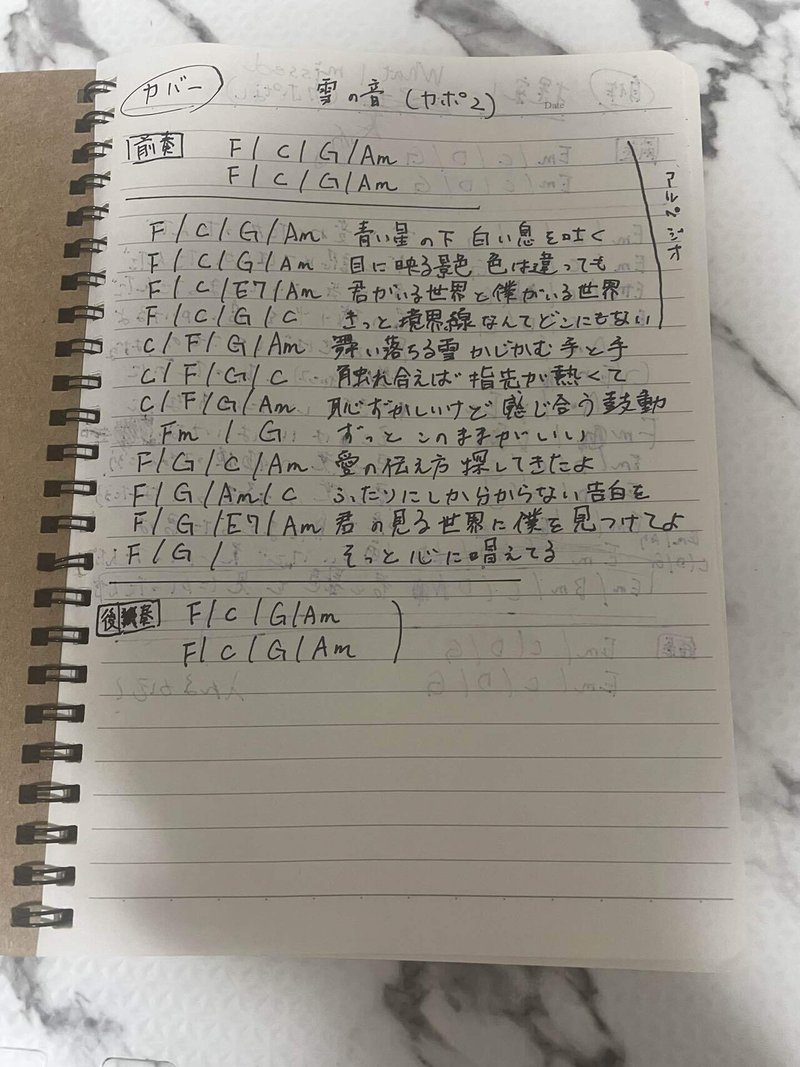 カバー 雪の音 (カポ2)
Date
前奏 F / C / G / Am
F / C / G / Am
アルペジオ
F / C / G / Am 青い星の下 白い息を吐く
F / C / G / Am 目に映る景色 色は違っても
F / C / E7 / Am 君がいる世界と僕がいる世界
F / C / G / C きっと境界線なんてどこにもない
C / F / G / Am 舞い落ちる雪 かじかむ手と手
C / F / G / C 触れ合えば 指先が熱くて
C / F / G / Am 恥ずかしいけど 感じ合う鼓動
Fm / G ずっと このままがいい
F / G / C / Am 愛の伝え方 探してきたよ
F / G / Am / C ふたりにしか分からない告白を
F / G / E7 / Am 君の見る世界に僕を見つけてよ
F / G / そっと心に唱えてる
後奏 F / C / G / Am
F / C / G / Am